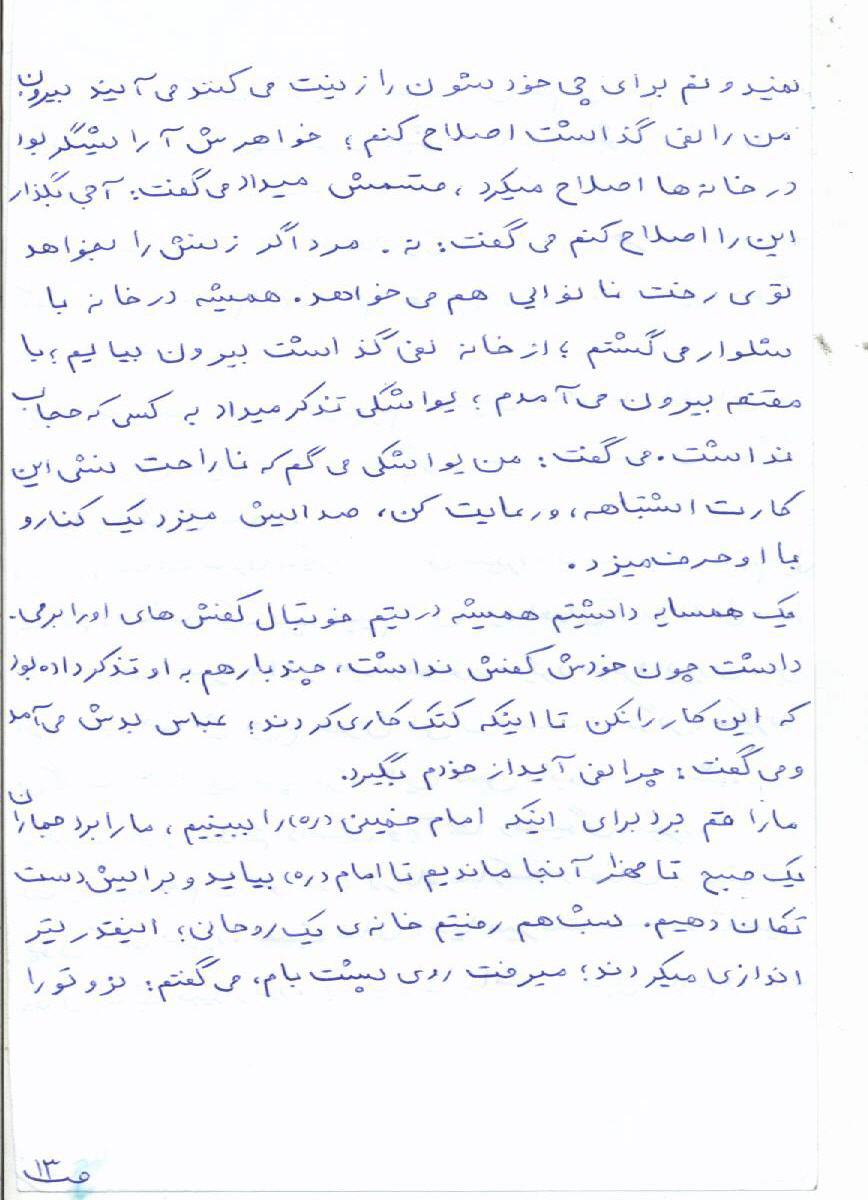 نمیدونم برای چی خودشون را زینت می کنند می آیند بیرون
من را نمی گذاشت اصلاح کنم ؛ خواهرش آرایشگر بود
در خانه ها اصلاح میکرد ، قسمش میداد می گفت: آجی بگذار
این را اصلاح کنم می گفت: نه . مرد اگر زنش را بخواهد
توی رخت نانوایی هم می خواهد. همیشه در خانه با
شلوار می گشتم ؛ از خانه نمی گذاشت بیرون بیایم ؛ با
مقنعه بیرون می آمدم ؛ یواشکی تذکر میداد به کسی که حجاب
نداشت. می گفت: من یواشکی می گم که ناراحت نشی این
کارت اشتباهه، و رعایت کن، صدایش میزد یک کنار و
با او حرف میزد.
یک همسایه داشتیم همیشه در تیم فوتبال کفش های او را برمی-
داشت چون خودش کفش نداشت، چند بار هم به او تذکر داده بود
که این کار را نکن تا اینکه کتک کاری کردند؛ عباس بدش می آمد
و می گفت: چرا نمی آید از خودم بگیرد.
ما را قم برد برای اینکه امام خمینی (ره) را ببینیم ، ما را برد جماران
یک صبح تا ظهر آنجا ماندیم تا امام (ره) بیاید و برایش دست
تکان دهیم. شب هم رفتیم خانه ی یک روحانی؛ اینقدر تیر
اندازی میکردند؛ میرفت روی پشت بام، می گفتم: نرو تو را
ص ۱۳